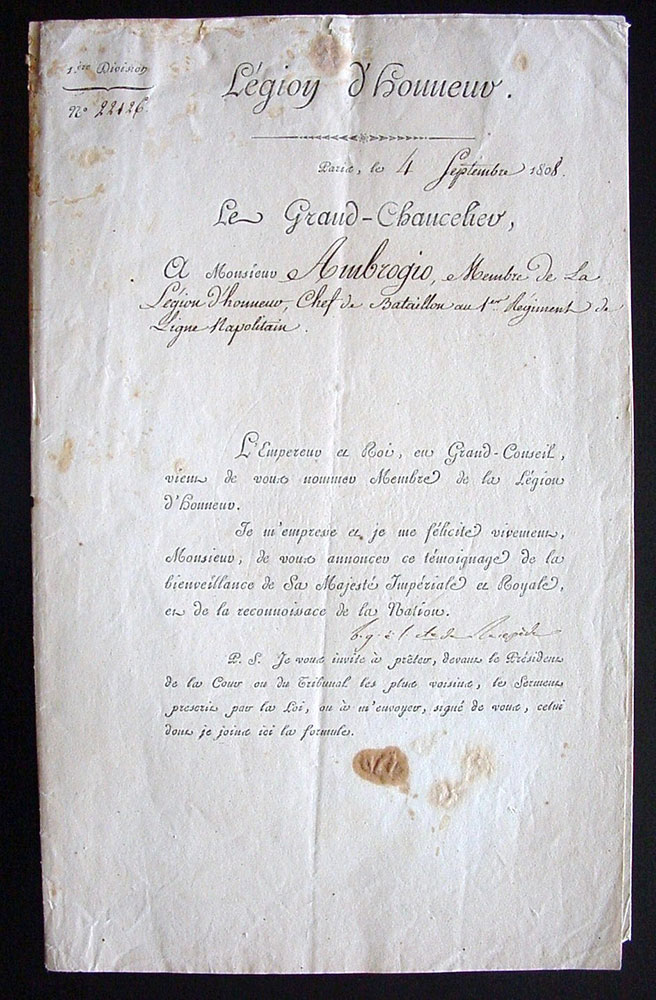 1.ère Division
N.º 22126.
Légion d'honneur.
Paris, le 4 Septembre 1808.
Le Grand-Chancelier,
A Monsieur Ambrogio, Membre de La
Légion d'honneur, Chef de Bataillon au 1er Régiment de
Ligne Napolitain.
L'Empereur et Roi, en Grand-Conseil,
vient de vous nommer Membre de la Légion
d'Honneur.
Je m'empresse et je me félicite vivement,
Monsieur, de vous annoncer ce témoignage de la
bienveillance de Sa Majesté Impériale et Royale,
et de la reconnoissace de la Nation.
P. S. Je vous invite à prêter, devant le Président
de la Cour ou du Tribunal les plus voisins, le Serment
prescrit par la Loi, ou à m'envoyer, signé de vous, celui
dont je joins ici la formule.